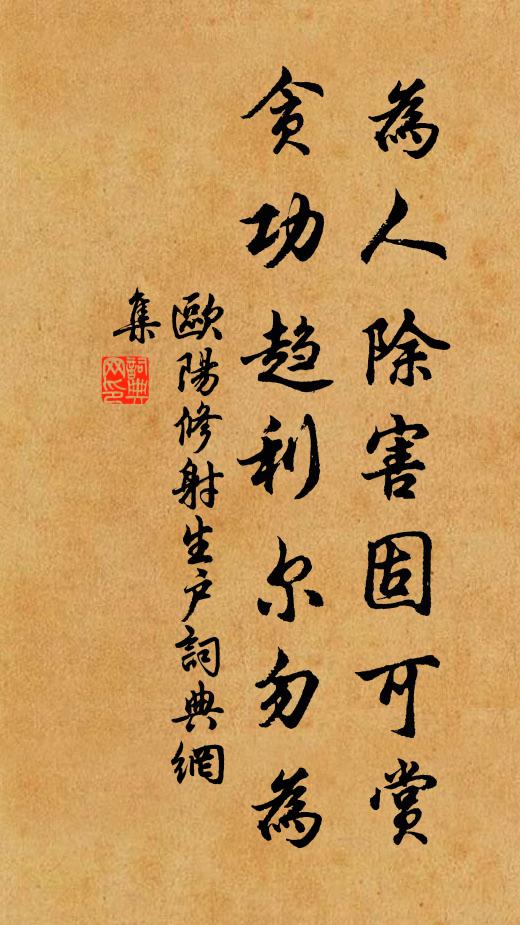 為人除害固可賞
貪功趋利尔勿為
歐陽修射生户詞典網
集
詞典
网印